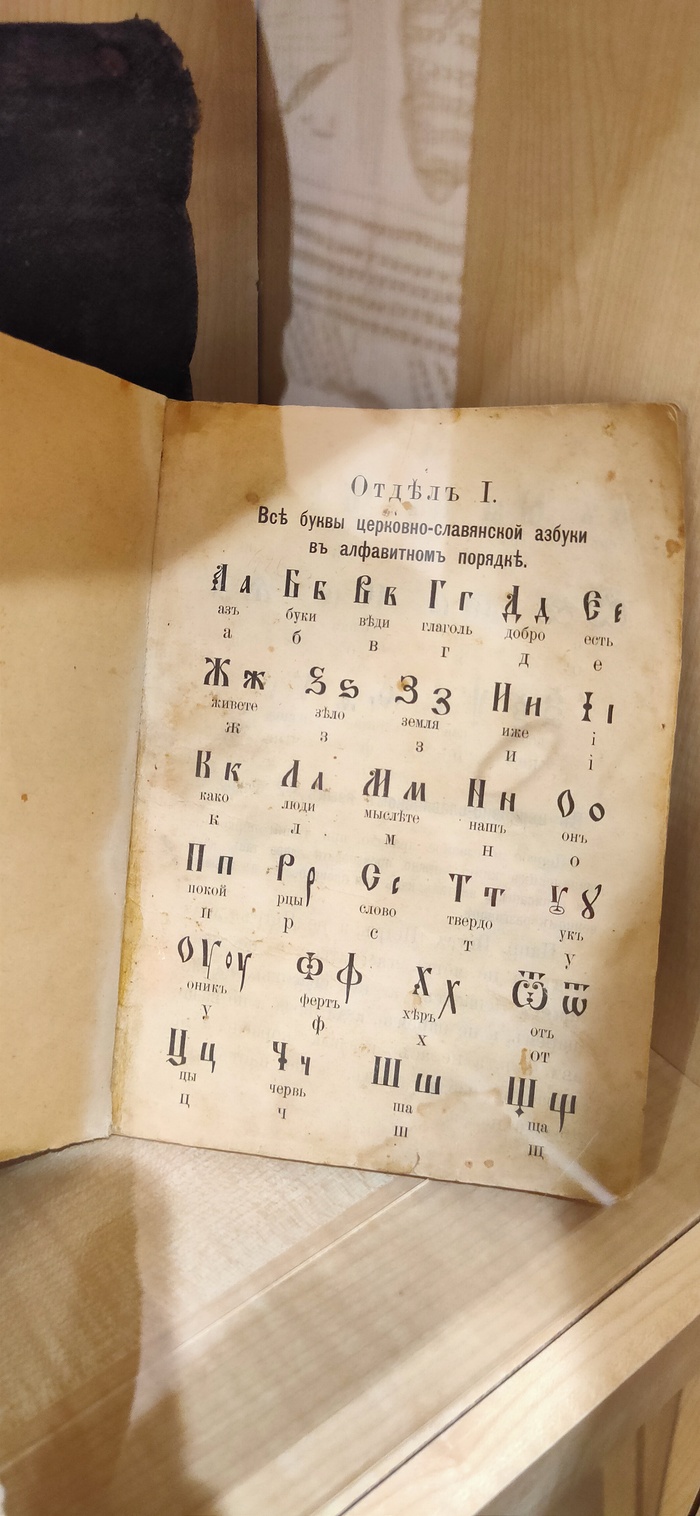 Отдѣлъ I.
Всѣ буквы церковно-славянской азбуки
въ алфавитномъ порядкѣ.
А а Б б В в Г г Д д Є є
азъ буки вѣди глаголь добро есть
а б в г д е
Ж ж Ѕ ѕ З з И и І і
живете зѣло земля иже і
ж з з и і
К к Л л М м Н н О о
како люди мыслѣте нашъ онъ
к л м н о
П п Р р С с Т т Ꙋ ꙋ
покой рцы слово твердо укъ
п р с т у
Оу оу Ф ф Х х Ѿ ѿ
оникъ фертъ хѣръ отъ
у ф х от
Ц ц Ч ч Ш ш Щ щ
цы червь ша ща
ц ч ш щ